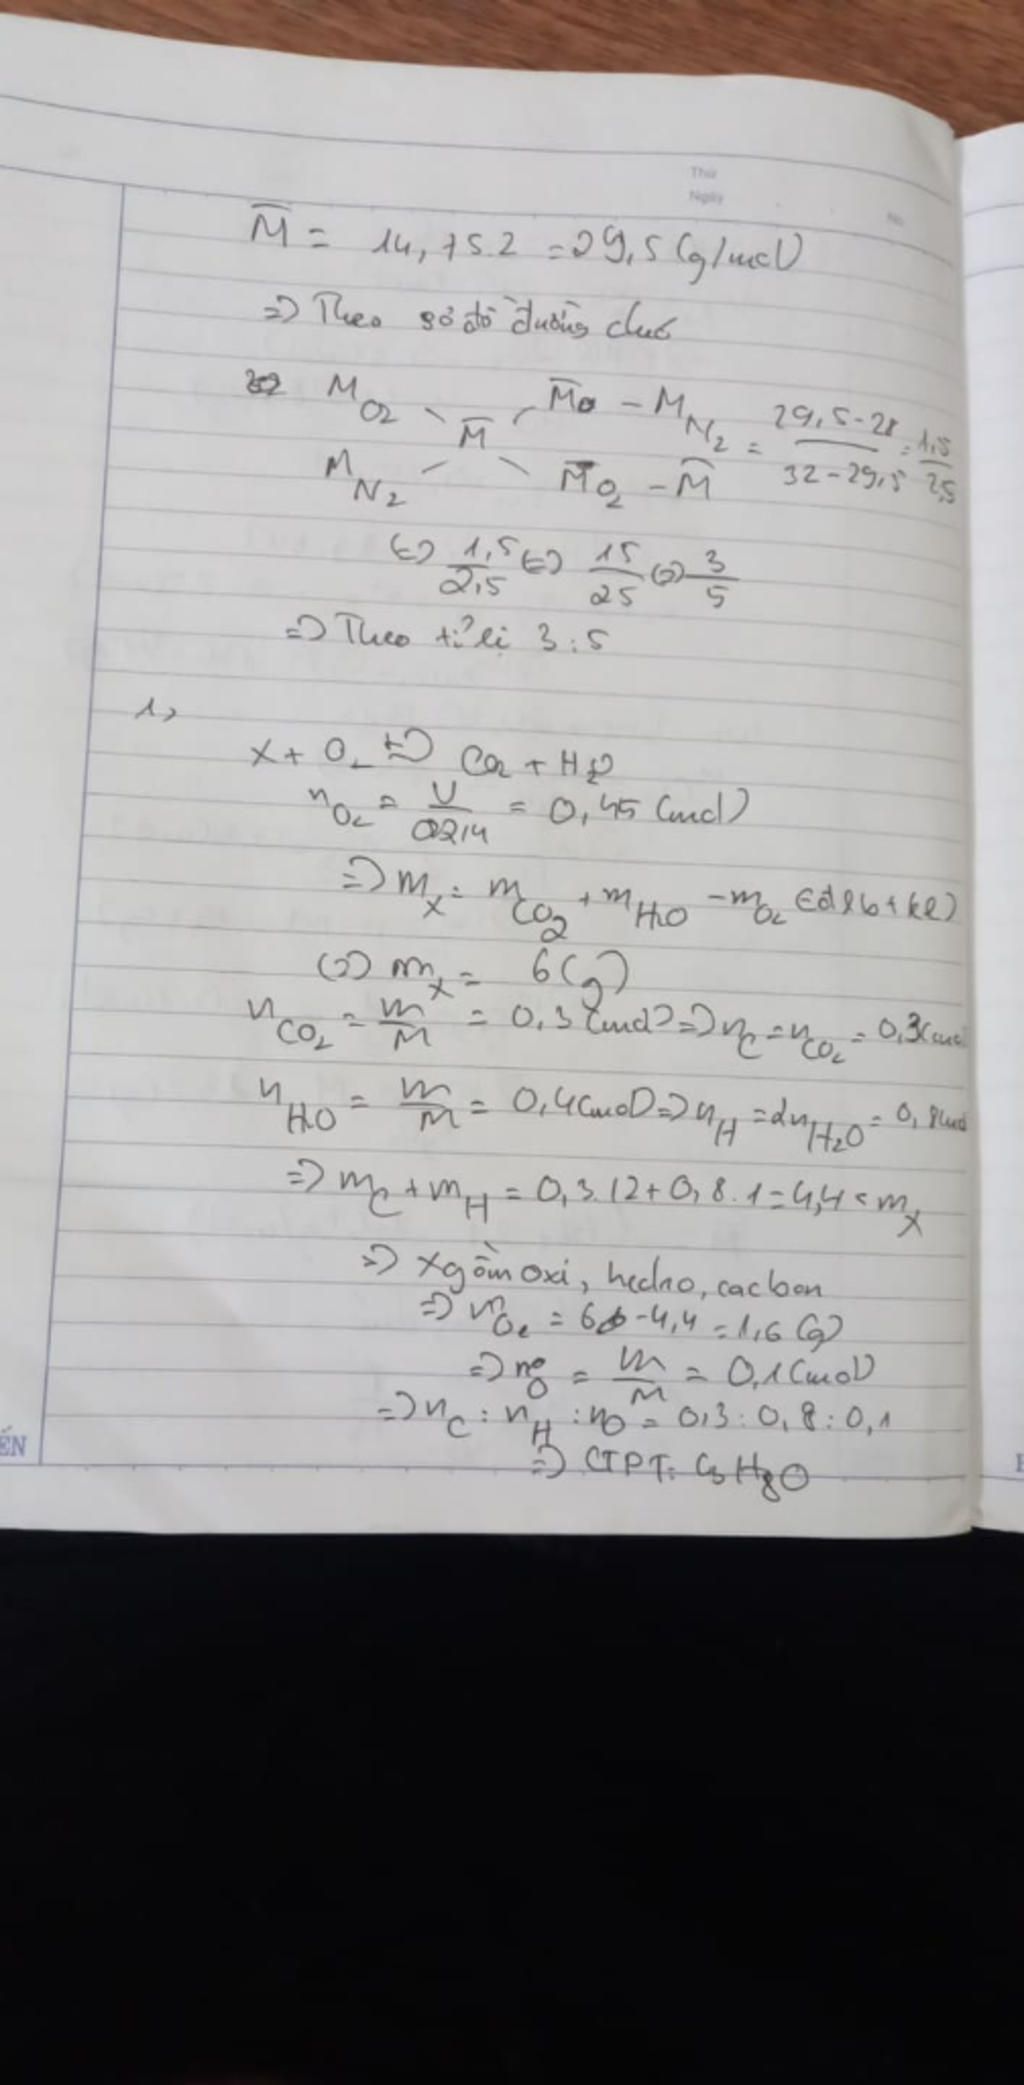 Thứ
Ngày
No
M̅ = 14,75.2 = 29,5 (g/mol)
=> Theo sơ đồ đường chéo
M O2 M̅ - M N2 = 29,5-28 / 32-29,5 = 1,5 / 2,5
M̅
M N2 M O2 - M̅
<=> 1,5/2,5 <=> 15/25 <=> 3/5
=> Theo tỉ lệ 3:5
1,
X + O2 => CO2 + H2O
nO2 = V/22,4 = 0,45 (mol)
=> mX = mCO2 + mH2O - mO2 (đlbtkl)
<=> mX = 6 (g)
nCO2 = m/M = 0,3 (mol) => nC = nCO2 = 0,3 (mol
nH2O = m/M = 0,4 (mol) => nH = 2nH2O = 0,8 mol
=> mC + mH = 0,3.12 + 0,8.1 = 4,4 < mX
=> X gồm oxi, hedro, cacbon
=> mO2 = 6 - 4,4 = 1,6 (g)
=> nO = m/M = 0,1 (mol)
=> nC : nH : nO = 0,3 : 0,8 : 0,1
=> CTPT: C3H8O
ẾN